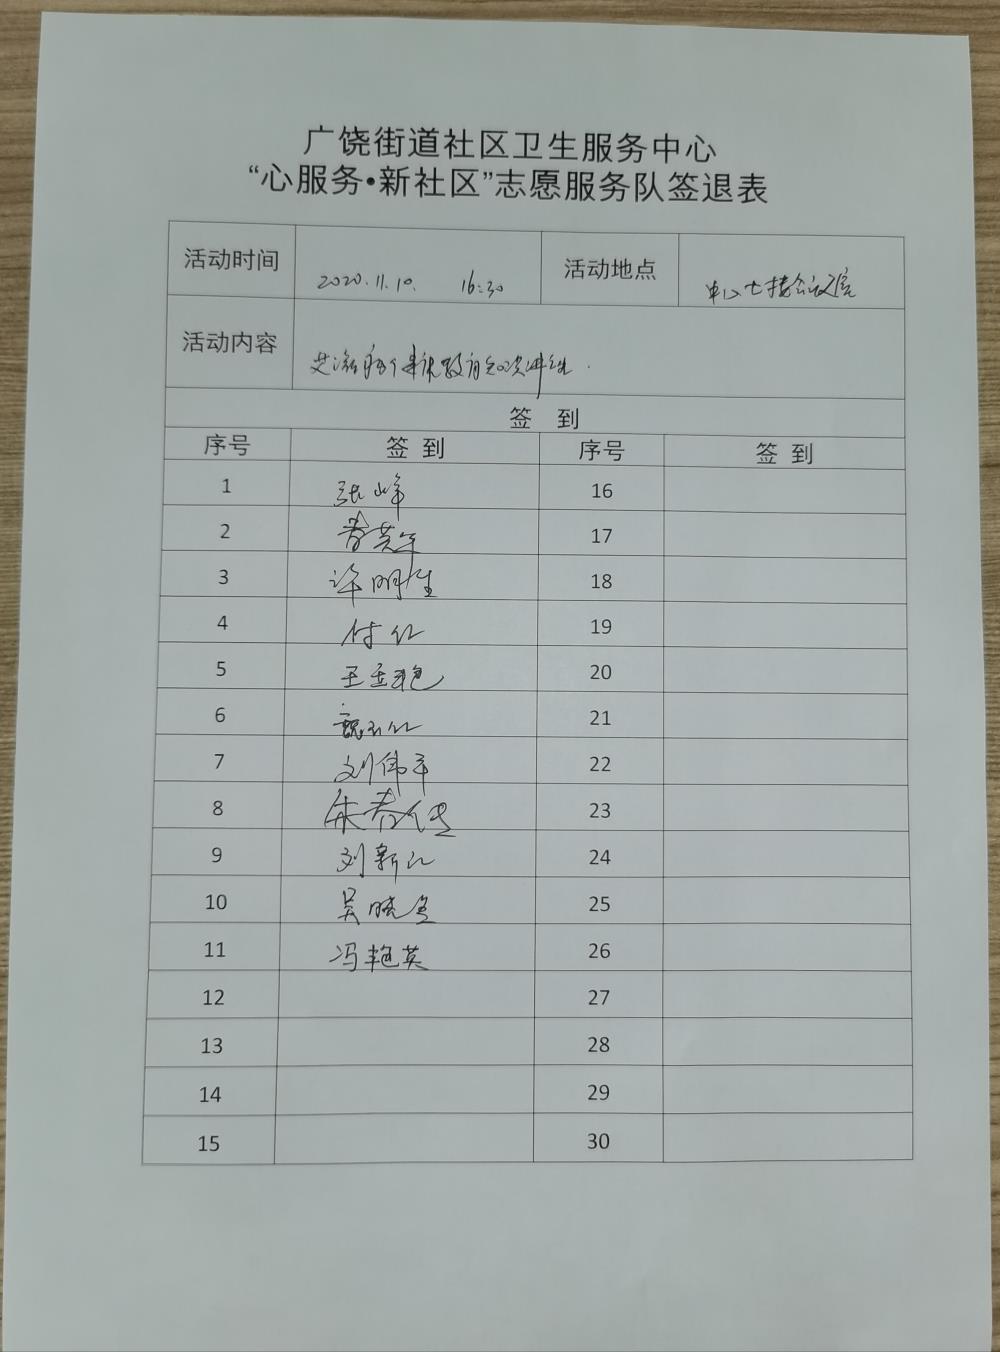 广饶街道社区卫生服务中心
“心服务•新社区”志愿服务队签退表
活动时间 2020.11.10. 16:30 活动地点 中心七楼会议室
活动内容
签 到
序号 签到 序号 签到
1 张峰 16
2 17
3 许明生 18
4 付红 19
5 王亚艳 20
6 21
7 刘伟平 22
8 23
9 刘新江 24
10 吴晓 25
11 冯艳英 26
12 27
13 28
14 29
15 30